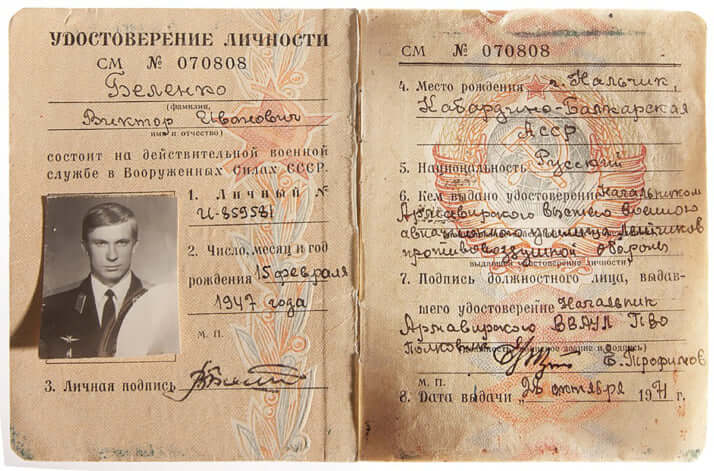 УДОСТОВЕРЕНИЕ ЛИЧНОСТИ
СМ № 070808
Беленко
(фамилия,
Виктор Иванович
имя и отчество)
состоит на действительной военной
службе в Вооруженных Силах СССР.
1. Личный №
И-859581
2. Число, месяц и год
рождения 15 февраля
1947 года
М. П.
3. Личная подпись
СМ № 070808
4. Место рождения г. Нальчик,
Кабардино-Балкарская
АССР
5. Национальность Русский
6. Кем выдано удостоверение Начальником
Армавирского высшего военного
авиационного училища летчиков
противовоздушной обороны
выдавшей удостоверение личности)
7. Подпись должностного лица, выдав-
шего удостоверение Начальник
Армавирского ВВАУЛ ПВО
Полковник звание и подпись)
Б. Трофимов
М. П.
8. Дата выдачи „28 октября 1971 г.